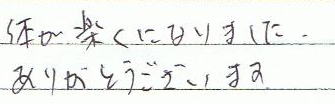 体が楽くになりました.
ありがとうございます